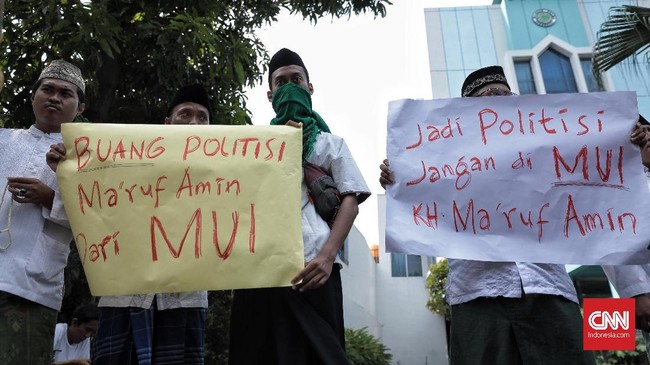 BUANG POLITISI
Ma'ruf Amin
Dari MUI
Jadi Politisi
Jangan di MUI
KH. Ma'ruf Amin
CNN
Indonesia.com